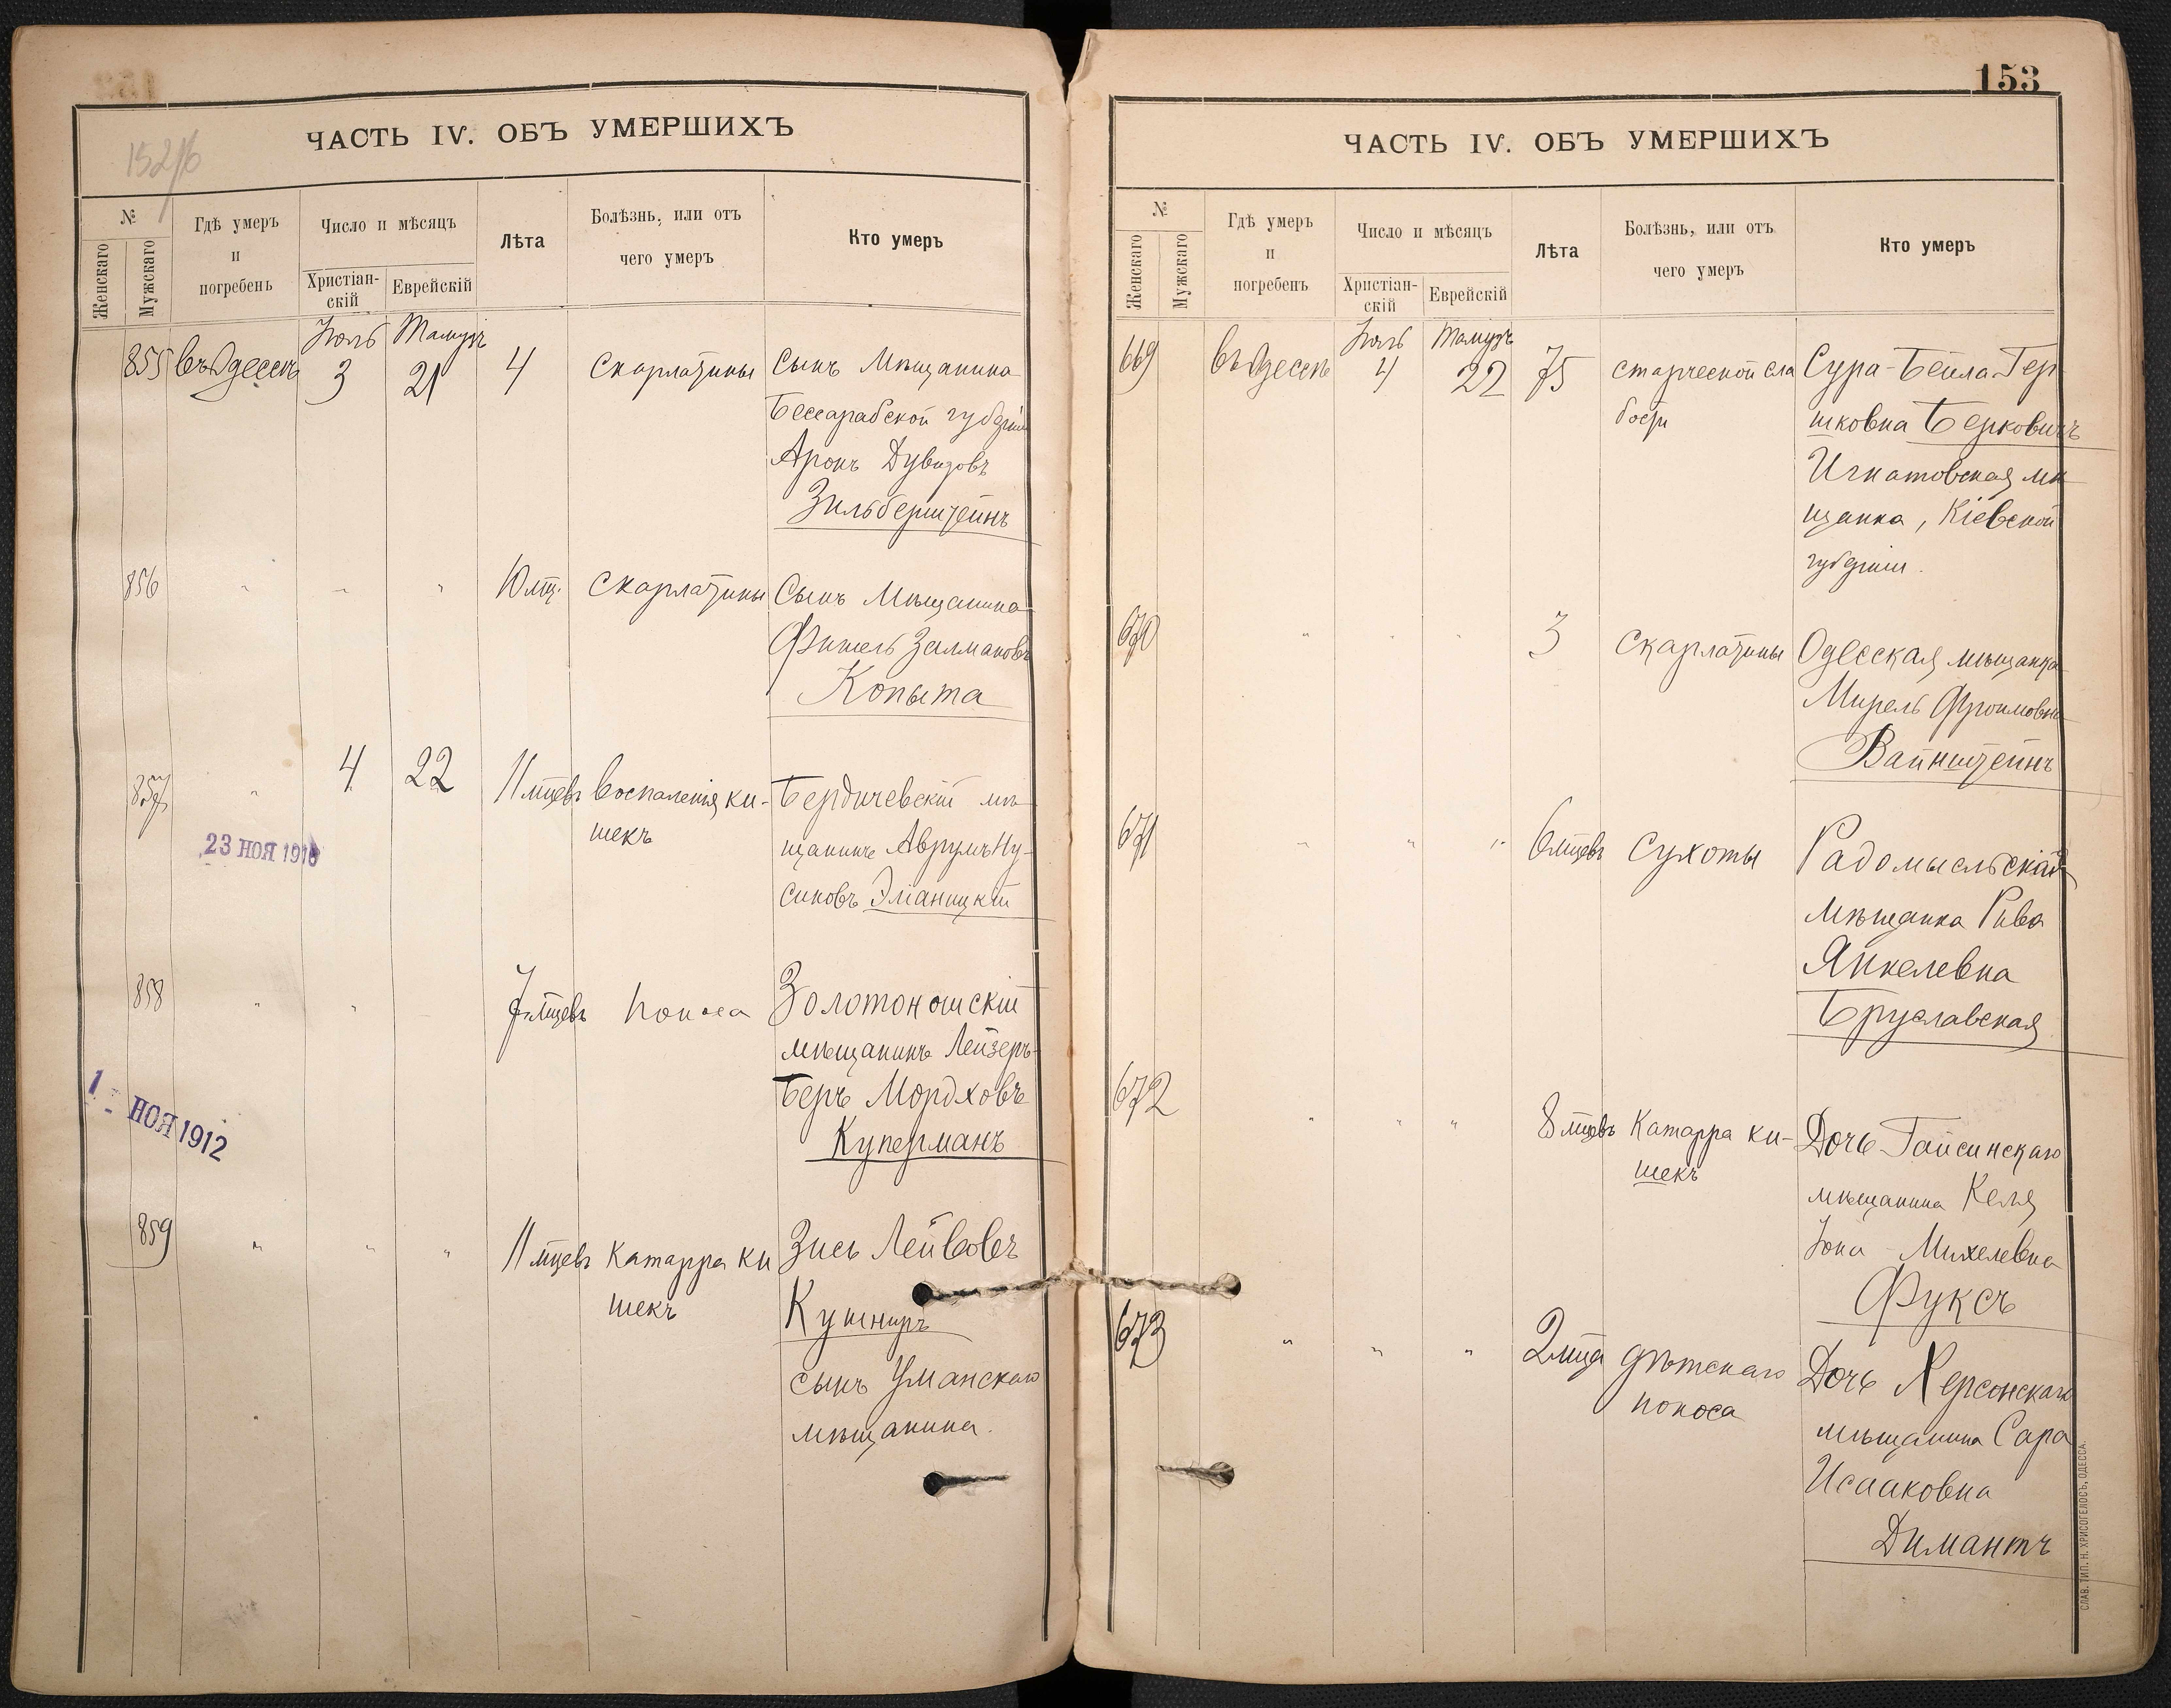 152/б
ЧАСТЬ IV. ОБЪ УМЕРШИХЪ
№
Женскаго
Мужскаго
Гдѣ умеръ
и
погребенъ
Число и мѣсяцъ
Христіан-
скій
Еврейскій
Лѣта
Болѣзнь, или отъ
чего умеръ
Кто умеръ
Іюль Тамузъ
855 въ Одессѣ 3 21 4 Скарлатины Сынъ Мѣщанина
Бессарабской губерніи
Аронъ Дувидовъ
Зильберштейнъ
856 " " " 10 мц. Скарлатины Сынъ Мѣщанина
Фишель Залмановъ
Копыта
857 " 4 22 11 мцевъ Воспаленія ки-
шекъ
Бердичевскій мѣ
щанинъ Аврумъ Ну-
синовъ Эманицкій
23 НОЯ 1916
858 " " 7 мцевъ Поноса Золотоношскій
мѣщанинъ Лейзеръ-
Беръ Мордховъ
Куперманъ
1 - НОЯ 1912
859 " " " 11 мцевъ Катарра ки
шекъ
Зись Лейвовъ
Кушниръ
сынъ Уманскаго
мѣщанина.
153
ЧАСТЬ IV. ОБЪ УМЕРШИХЪ
№
Женскаго
Мужскаго
Гдѣ умеръ
и
погребенъ
Число и мѣсяцъ
Христіан-
скій
Еврейскій
Лѣта
Болѣзнь, или отъ
чего умеръ
Кто умеръ
Іюль Тамузъ
669 въ Одессѣ 4 22 75 старческой сла
бости
Сура-Бейла Гер
шковна Берковичъ
Игнатовская мѣ
щанка, Кіевской
губерніи.
670 " " " 3 Скарлатины Одесская мѣщанка
Мирель Фроимовна
Вайнштейнъ
671 " " " 6 мцевъ Сухоты Радомысльская
мѣщанка Рива
Янкелевна
Бруславская
672 " " " 8 мцевъ Катарра ки-
шекъ
Дочь Гайсинскаго
мѣщанина Келя
Михелевна
Фуксъ
673 " " " 2 мца дѣтскаго
поноса
Дочь Херсонскаго
мѣщанина Сара
Исааковна
Димантъ
СЛАВ. ТИП. Н. ХРИСОГЕЛОСЪ, ОДЕССА.